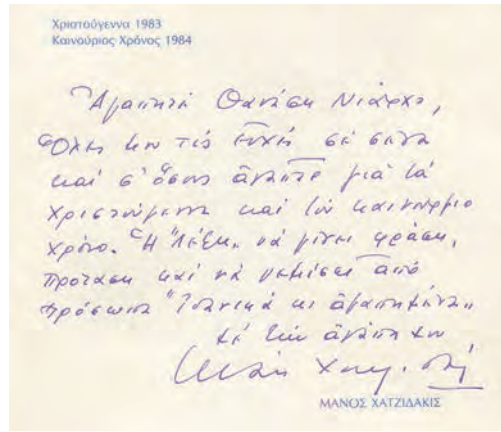 Χριστούγεννα 1983
Καινούριος Χρόνος 1984
Ἀγαπητέ Θανάση Νιάρχο,
Ὅλες μου τίς εὐχές σέ σένα
καί σ' ὅσους ἀγαπᾶς γιά τά
Χριστούγεννα καί τόν καινούργιο
χρόνο. Ἡ "Λέξη" νά γίνει φράση,
πρόταση καί νά γεμίσει ἀπό
πρόσωπα "ἰδανικά κι ἀγαπημένα"
Μέ τήν ἀγάπη μου
ΜΑΝΟΣ ΧΑΤΖΙΔΑΚΙΣ